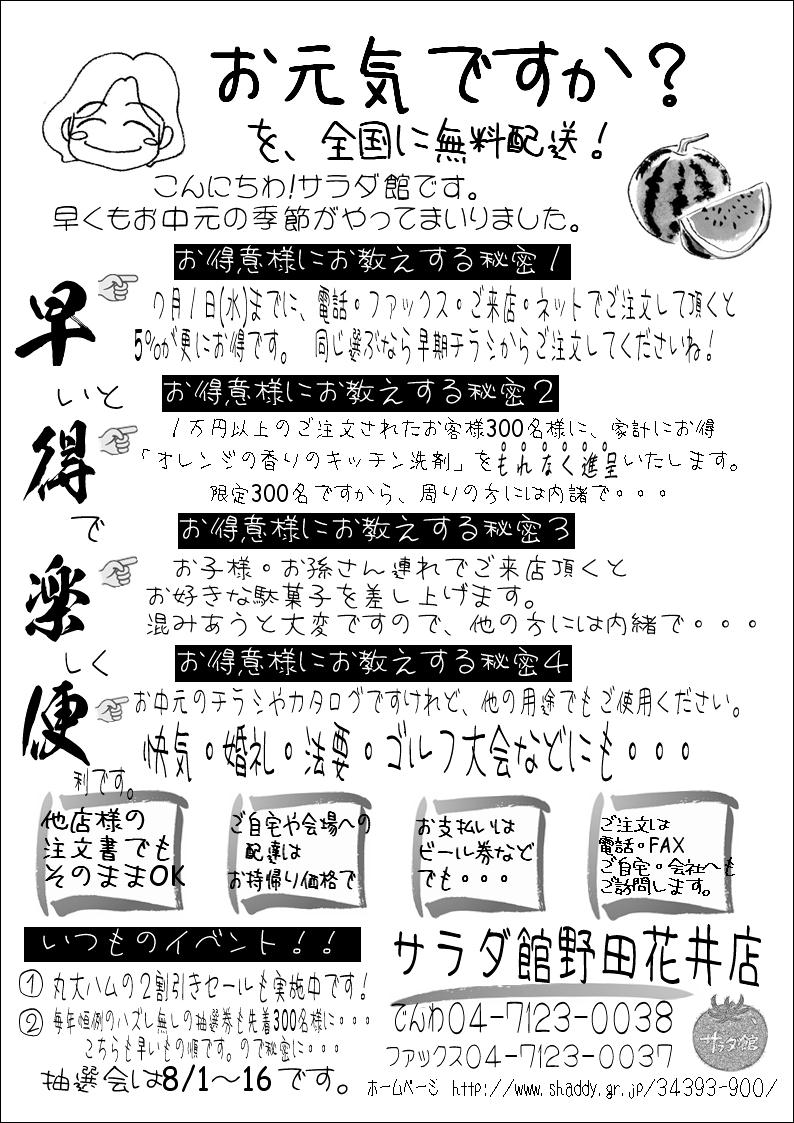 お元気ですか？
を、全国に無料配送！
こんにちわ!サラダ館です。
早くもお中元の季節がやってまいりました。
お得意様にお教えする秘密１
早
７月１日(水)までに、電話・ファックス・ご来店・ネットでご注文して頂くと
5%が更にお得です。 同じ選ぶなら早期チラシからご注文してくださいね！
いと
お得意様にお教えする秘密２
得
１万円以上のご注文されたお客様300名様に、家計にお得
「オレンジの香りのキッチン洗剤」をもれなく進呈いたします。
限定300名ですから、周りの方には内諸で・・・
で
お得意様にお教えする秘密３
楽
お子様・お孫さん連れでご来店頂くと
お好きな駄菓子を差し上げます。
混みあうと大変ですので、他の方には内緒で・・・
しく
お得意様にお教えする秘密４
便
お中元のチラシやカタログですけれど、他の用途でもご使用ください。
快気・婚礼・法要・ゴルフ大会などにも・・・
利です。
他店様の
注文書でも
そのままOK
ご自宅や会場への
配達は
お持帰り価格で
お支払いは
ビール券など
でも・・・
ご注文は
電話・FAX
ご自宅・会社へも
ご訪問します。
いつものイベント！！
① 丸大ハムの２割引きセールも実施中です！
② 毎年恒例のハズレ無しの抽選券も先着300名様に・・・
こちらも早いもの順です。ので秘密に・・・
抽選会は8/1～16です。
サラダ館野田花井店
でんわ04-7123-0038
ファックス04-7123-0037
サラダ館
ホームページ http://www.shaddy.gr.jp/34393-900/